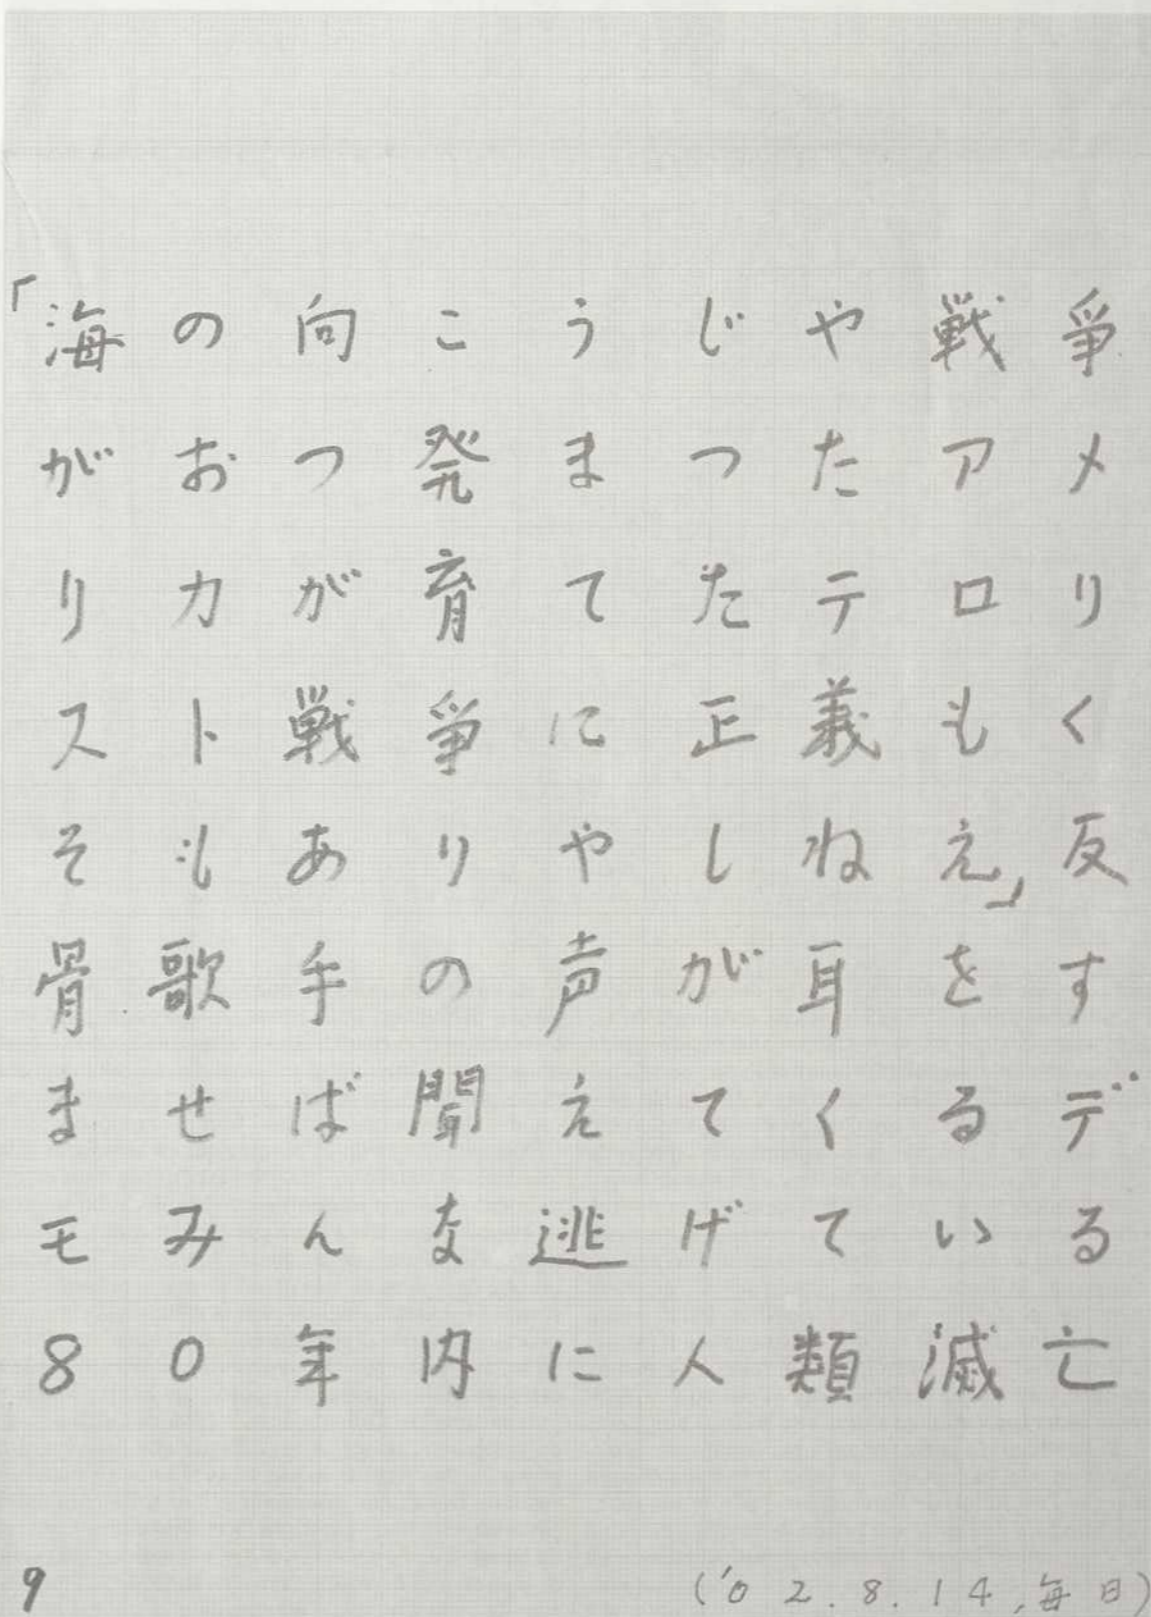 「海の向こうじゃ戦争
がおっ発まったアメ
リカが育てたテロリ
スト戦争に正義もく
そもありゃしねえ」反
骨歌手の声が耳をす
ませば聞えてくるデ
モみんな逃げている
80年内に人類滅亡
9
('02.8.14,毎日)